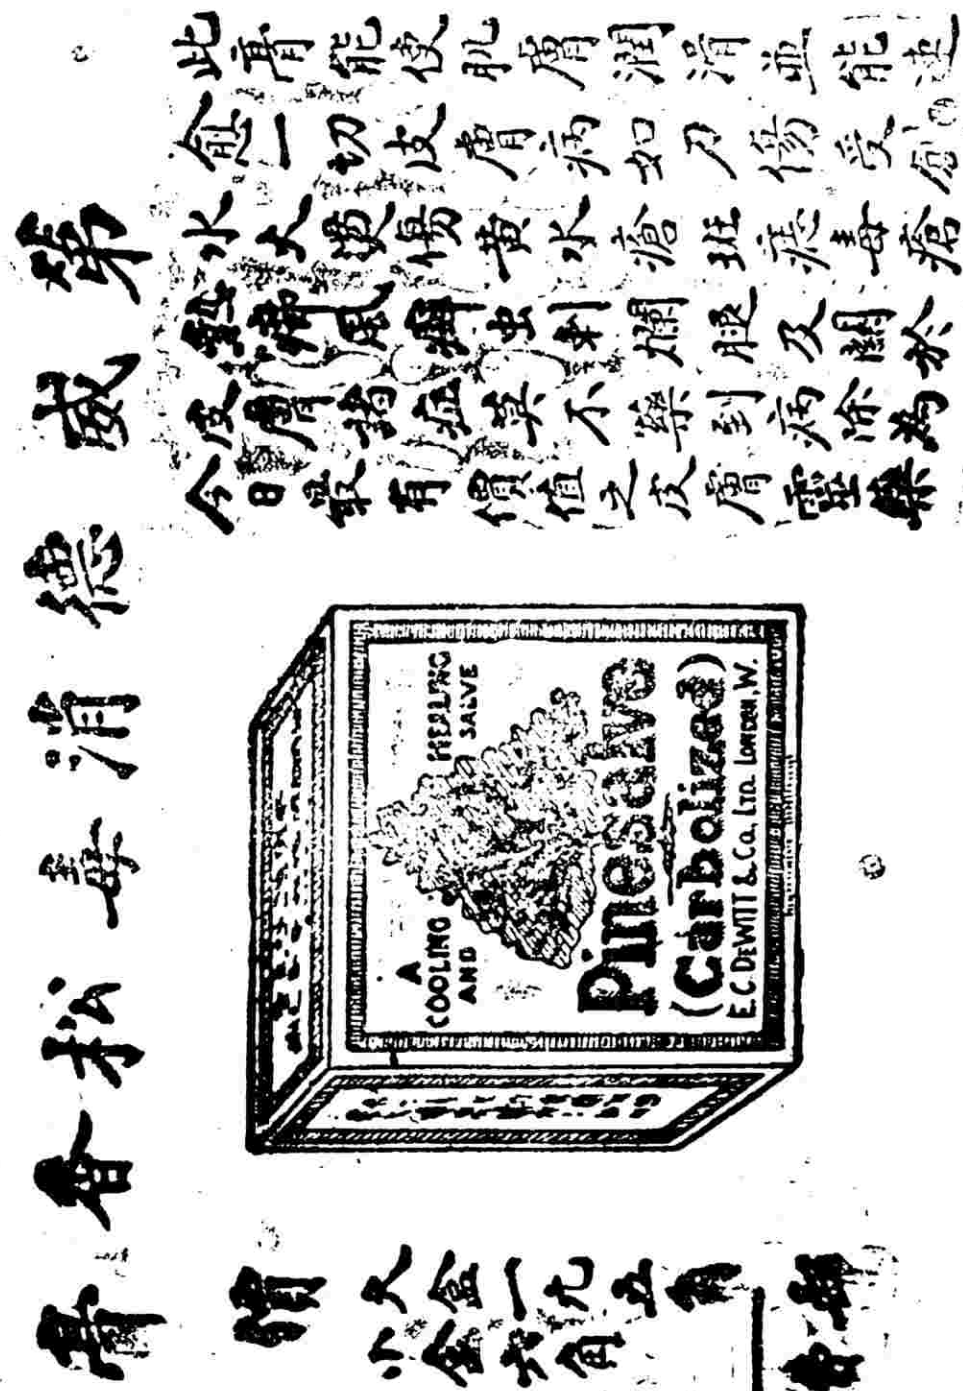 第威德消毒松香膏
此膏能使肌膚潤滑並能速
愈一切皮膚病如刀傷受創
水火燙傷黃水瘡班痣毒瘡
風癬虫刺爛腿及關於
皮膚諸症莫不藥到病除為
今日最有價值之皮膚靈藥
A
COOLING HEALING
AND SALVE
Pinesalve
(Carbolized)
E.C. DEWITT & Co, LTD. LONDON, W.
大盒一元五角
小盒六角